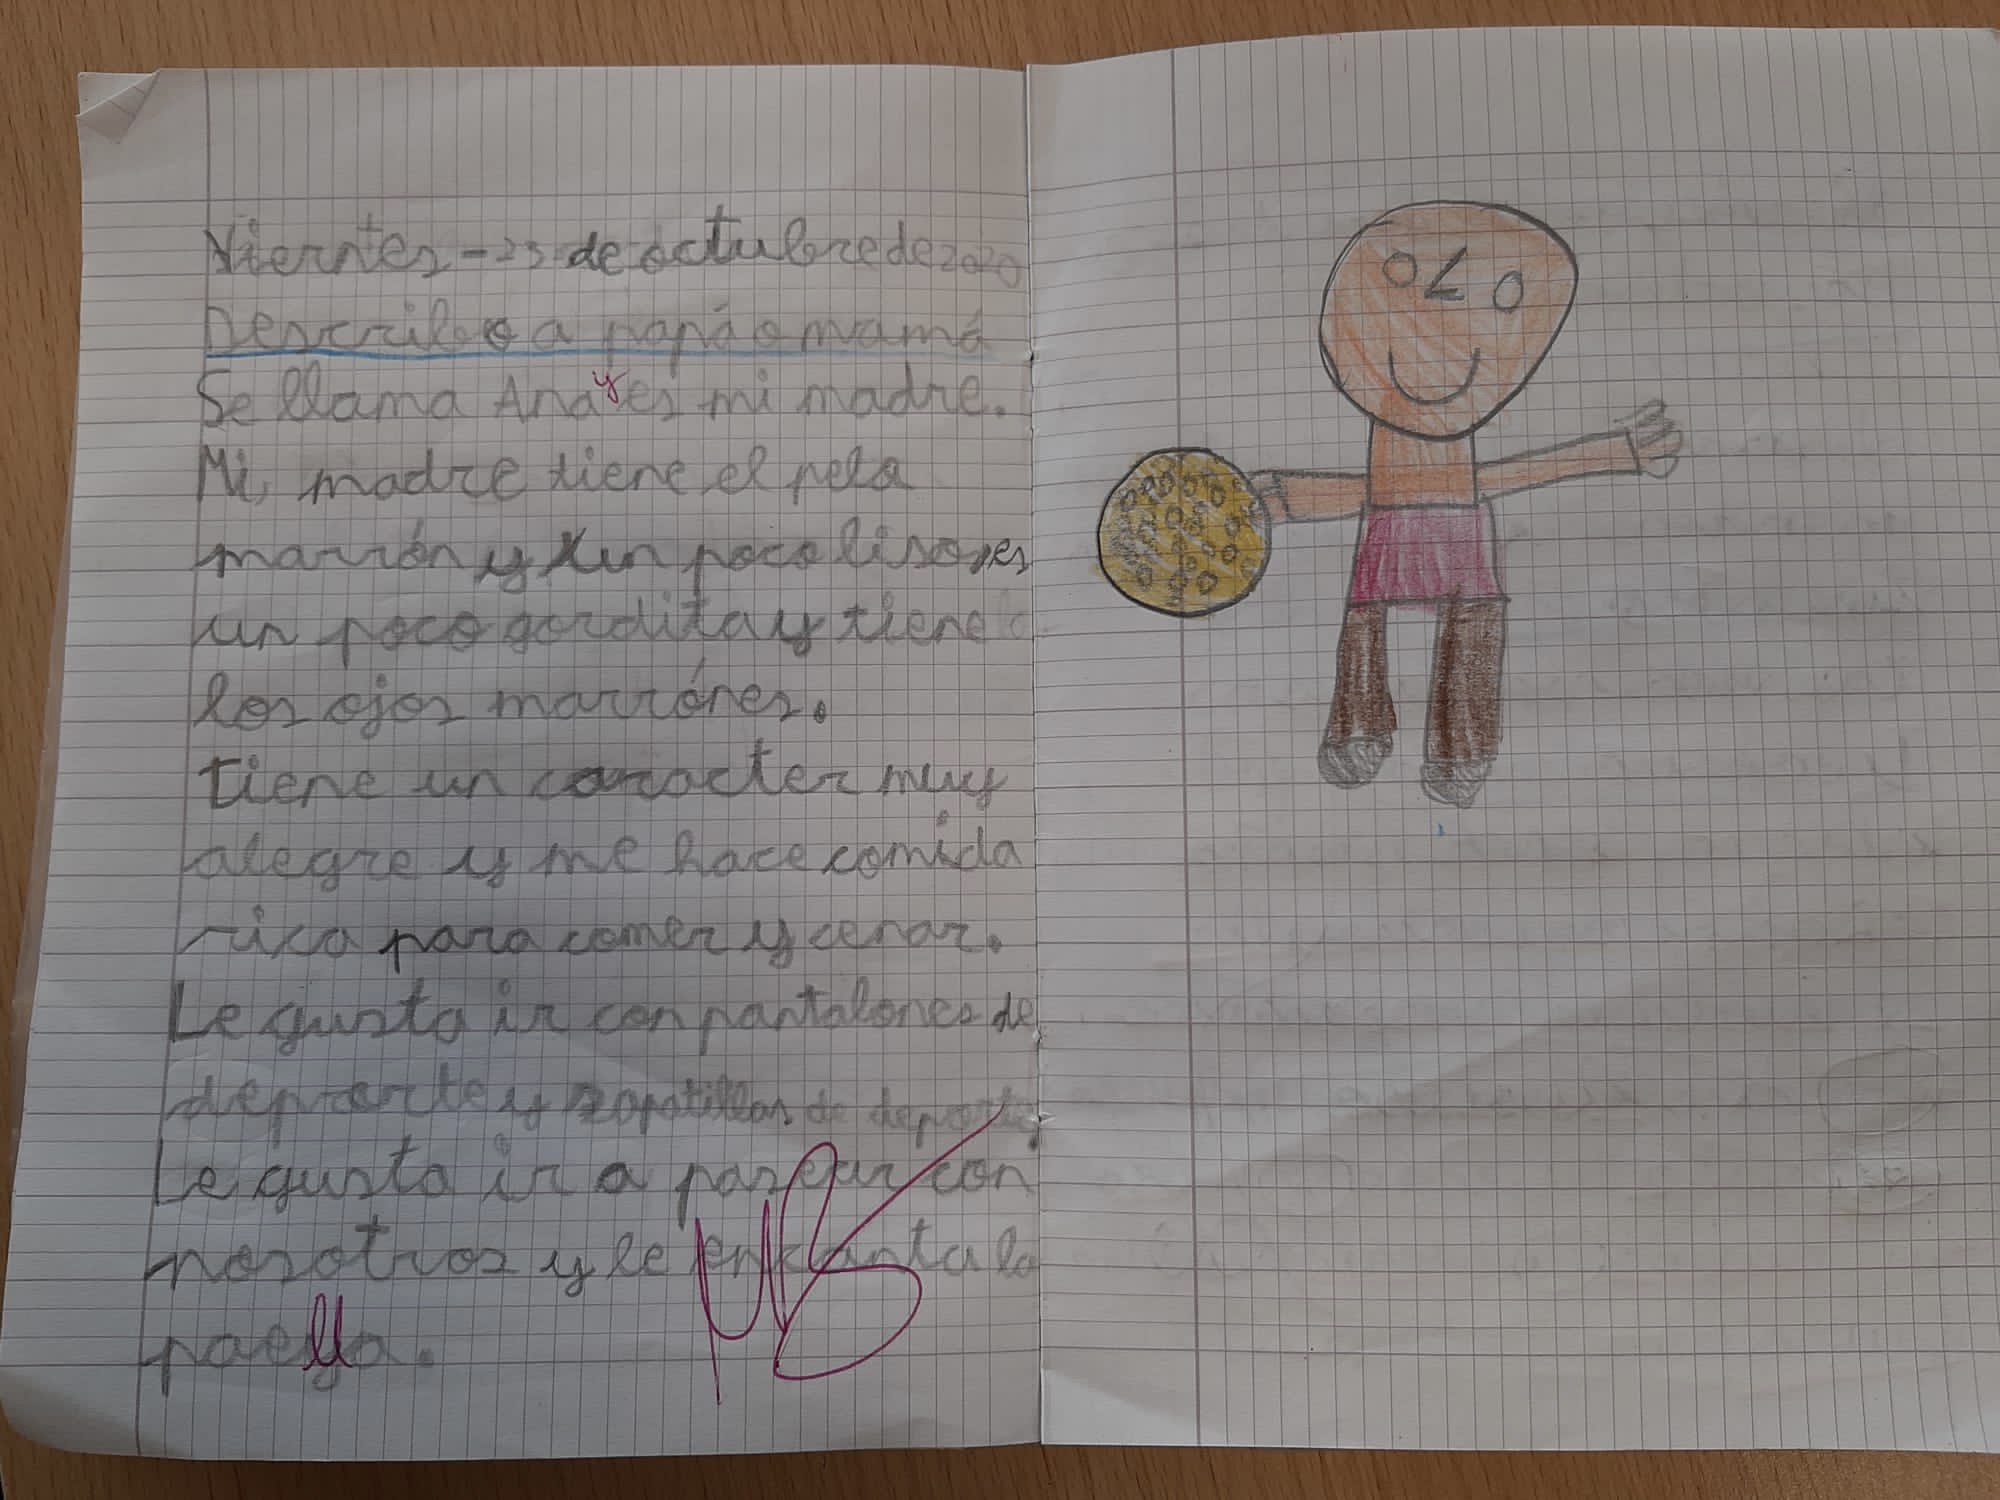 Viernes - 23 de octubre de 2020
Describo a papá o mamá
Se llama Ana y es mi madre.
Mi madre tiene el pelo
marrón y un poco liso y es
un poco gordita y tiene
los ojos marrónes.
tiene un caracter muy
alegre y me hace comida
rica para comer y cenar.
Le gusta ir con pantalones de
deporte y zapatillas de deporte
Le gusta ir a pasear con
nosotros y le encanta la
paella.
MB